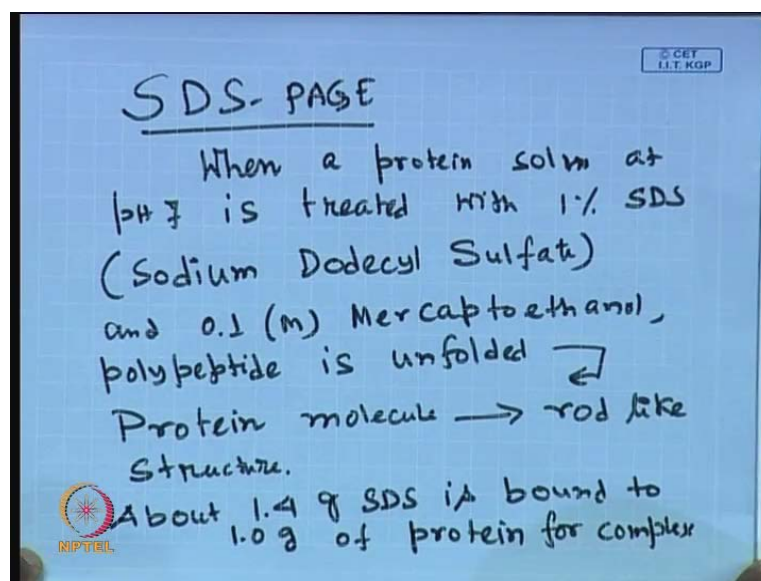 © CET
I.I.T. KGP
SDS-PAGE
When a protein soln at
pH 7 is treated with 1% SDS
(Sodium Dodecyl Sulfate)
and 0.1 (m) Mercaptoethanol,
polypeptide is unfolded
Protein molecule → rod like
structure.
About 1.4 g SDS is bound to
1.0 g of protein for complex
NPTEL